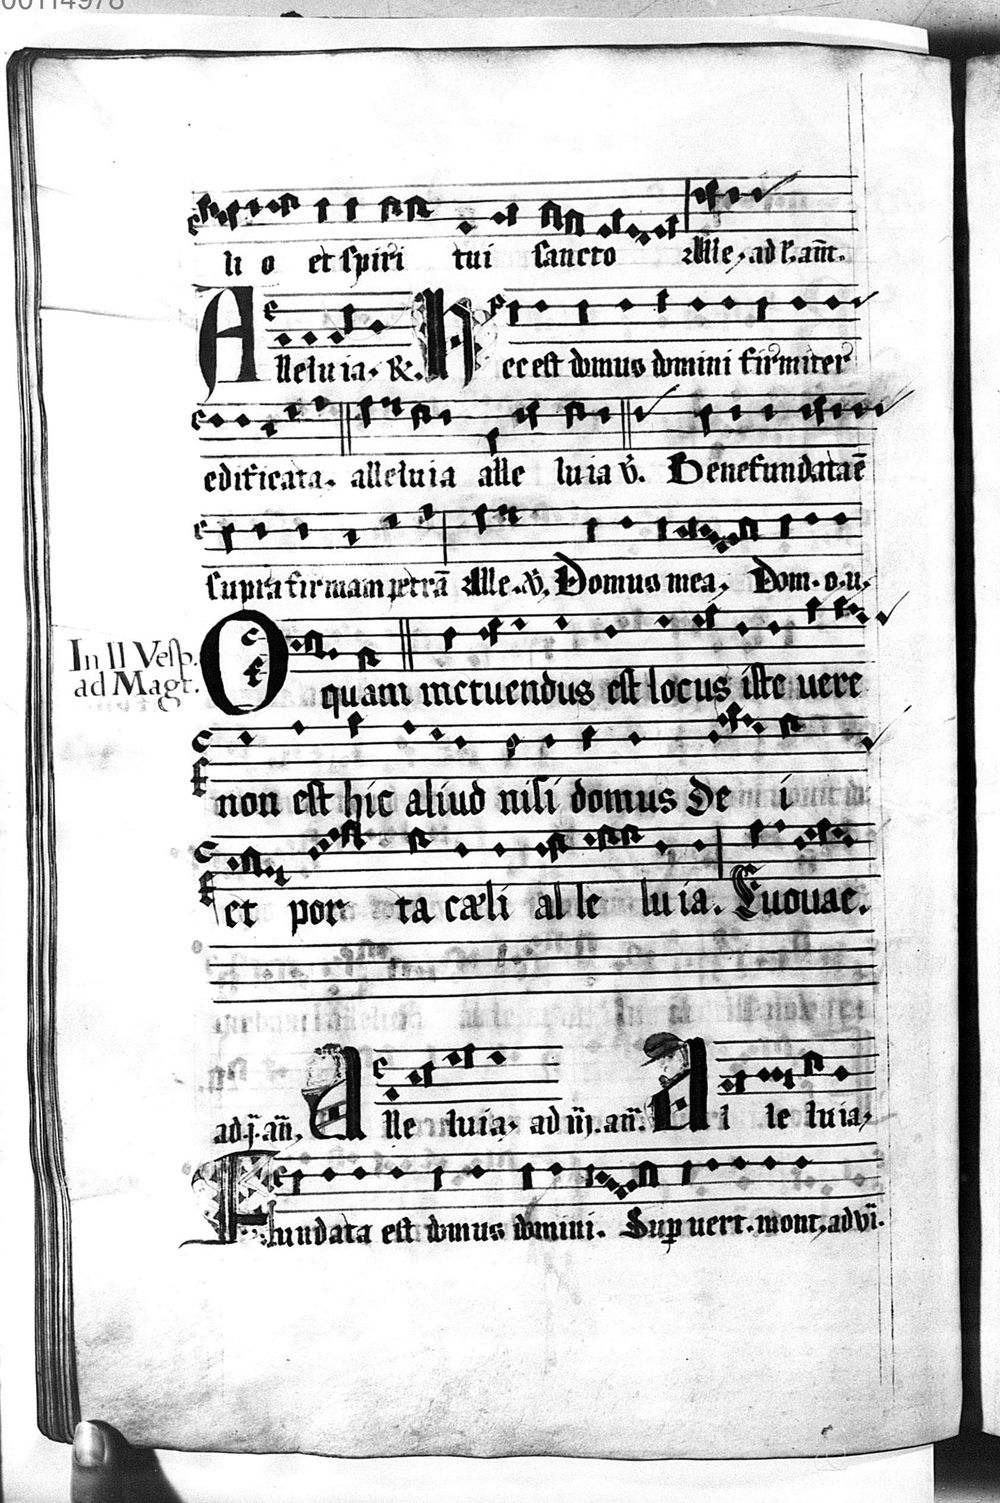 00114978
li o et spiri tui sancto Alle, ad s. am̄.
Alleluia. &. Hec est domus domini firmiter
edificata. alleluia alle luia v̄. Bene fundata ē
supra firmam petrā Alle. v̄. Domus mea. Dom. o. u.
In II Vesp.
ad Magt.
O quam metuendus est locus iste uere
non est hic aliud nisi domus De i
et por ta cæli al le luia. Euouae.
ad. j. an̄. Alle luia. ad iij. an̄. Al le luia,
Fundata est domus domini. Sup uert. mont, ad vi.